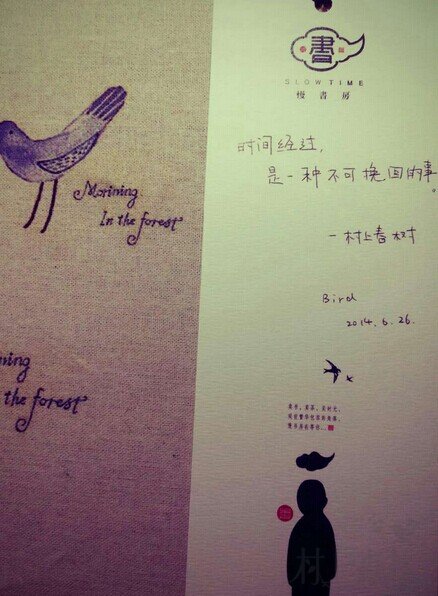 Morining
In the forest
ning
the forest
書
SLOWTIME
慢書房
时间经过,
是一种不可挽回的事。
—村上春树
Bird
2014.6.26.
村